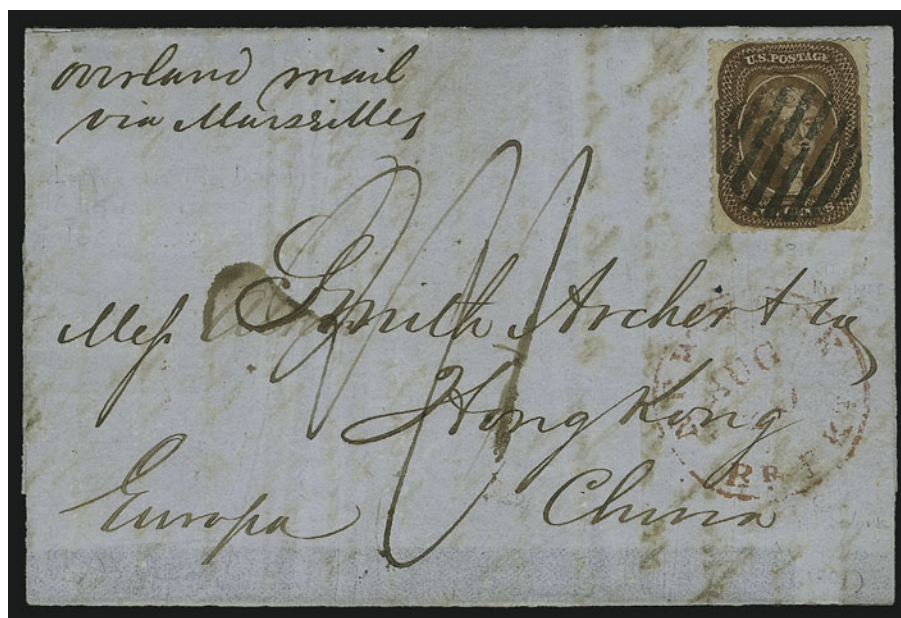 overland mail
via Marseilles
U.S. POSTAGE
Mess Smith Archer & Co
Hong Kong
AUG
Europa
China